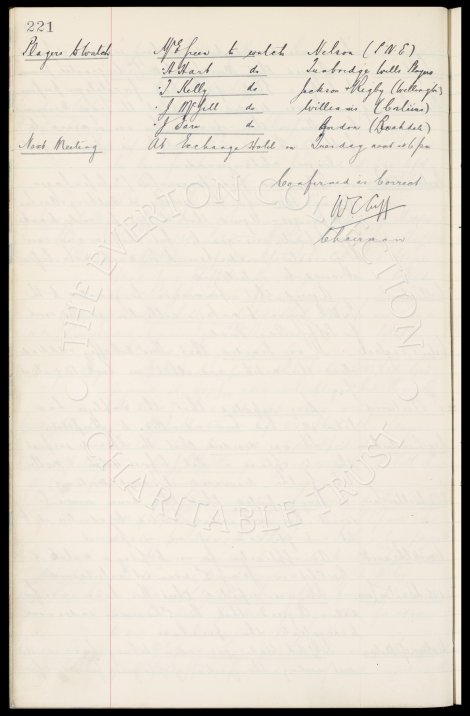 221
Players to Watch Mr E Green to watch Nelson (P.N.E)
" A Hart do Tunbridge Wells Players
" T Kelly do Jackson & Rigby (Wellington)
" J McGill do Williams (
" J Sare do Gordon (Rochdale)
Next Meeting At Exchange Hotel on Tuesday next at 6 pm
Confirmed as Correct
W C Cuff
Chairman
THE EVERTON COLLECTION
CHARITABLE TRUST